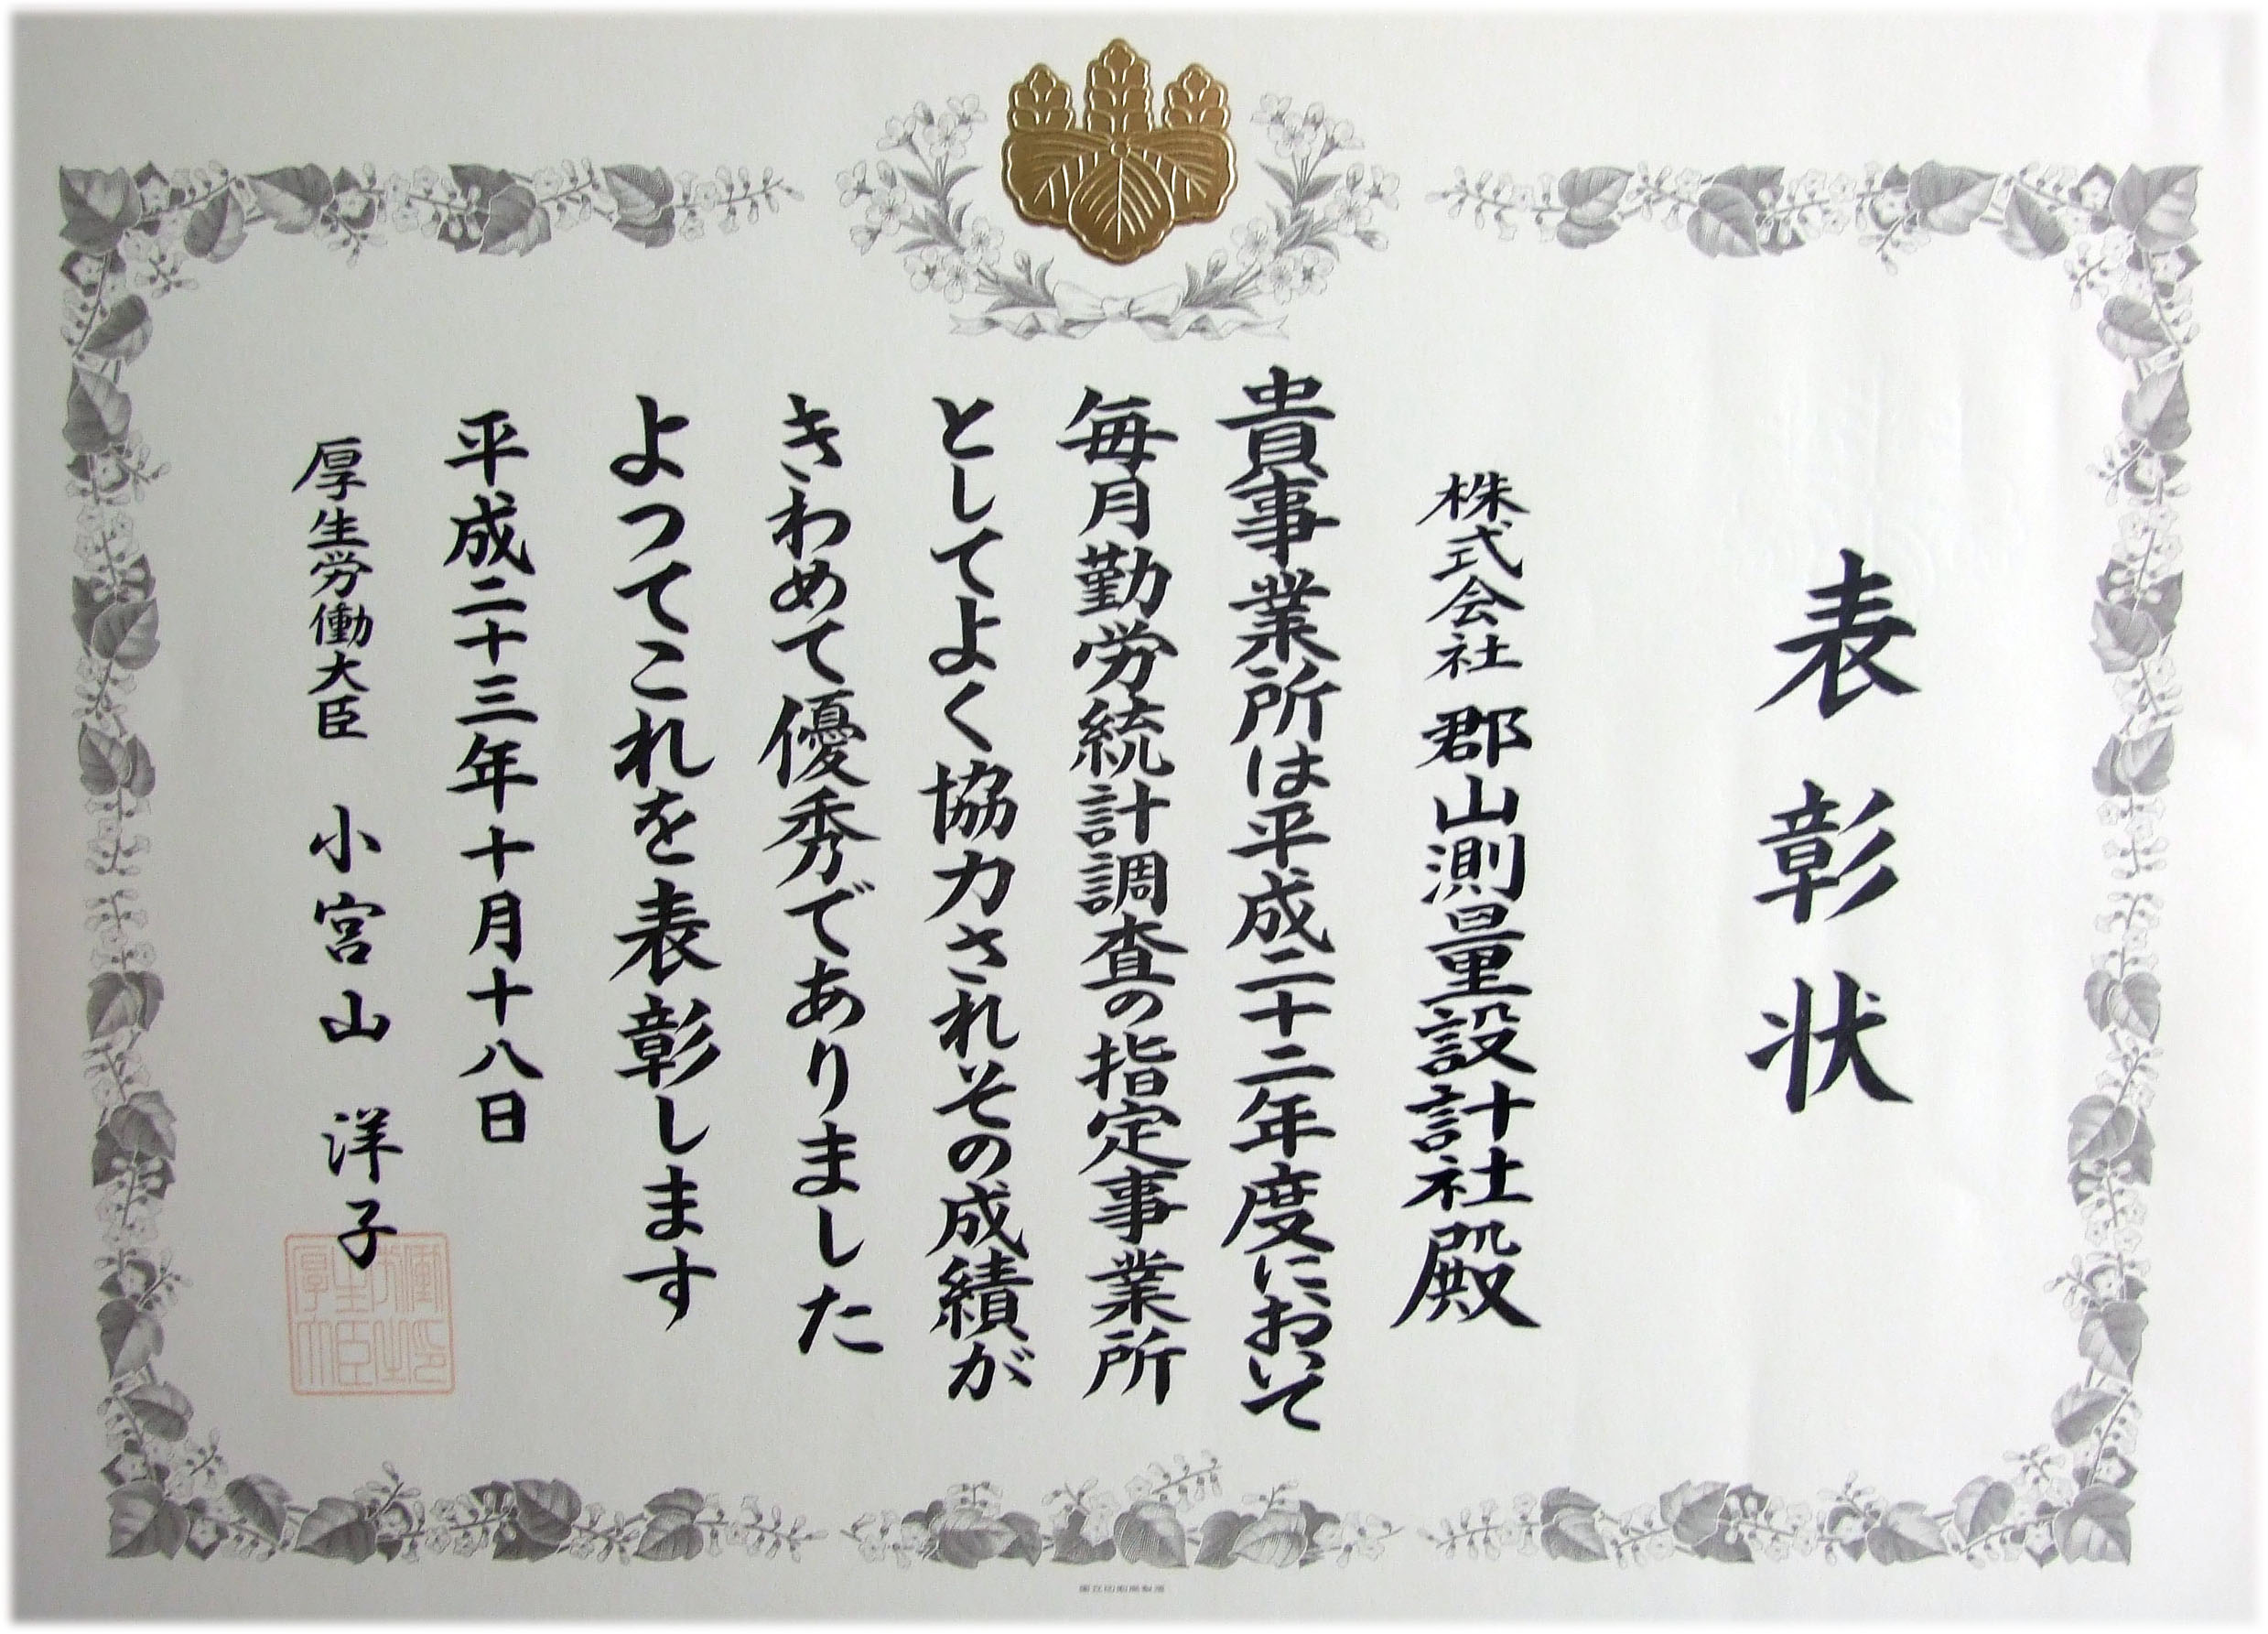 表彰状
株式会社 郡山測量設計社殿
貴事業所は平成二十二年度において
毎月勤労統計調査の指定事業所
としてよく協力されその成績が
きわめて優秀でありました
よつてこれを表彰します
平成二十三年十月十八日
厚生労働大臣 小宮山 洋子
厚生労働大臣之印
国立印刷局製造